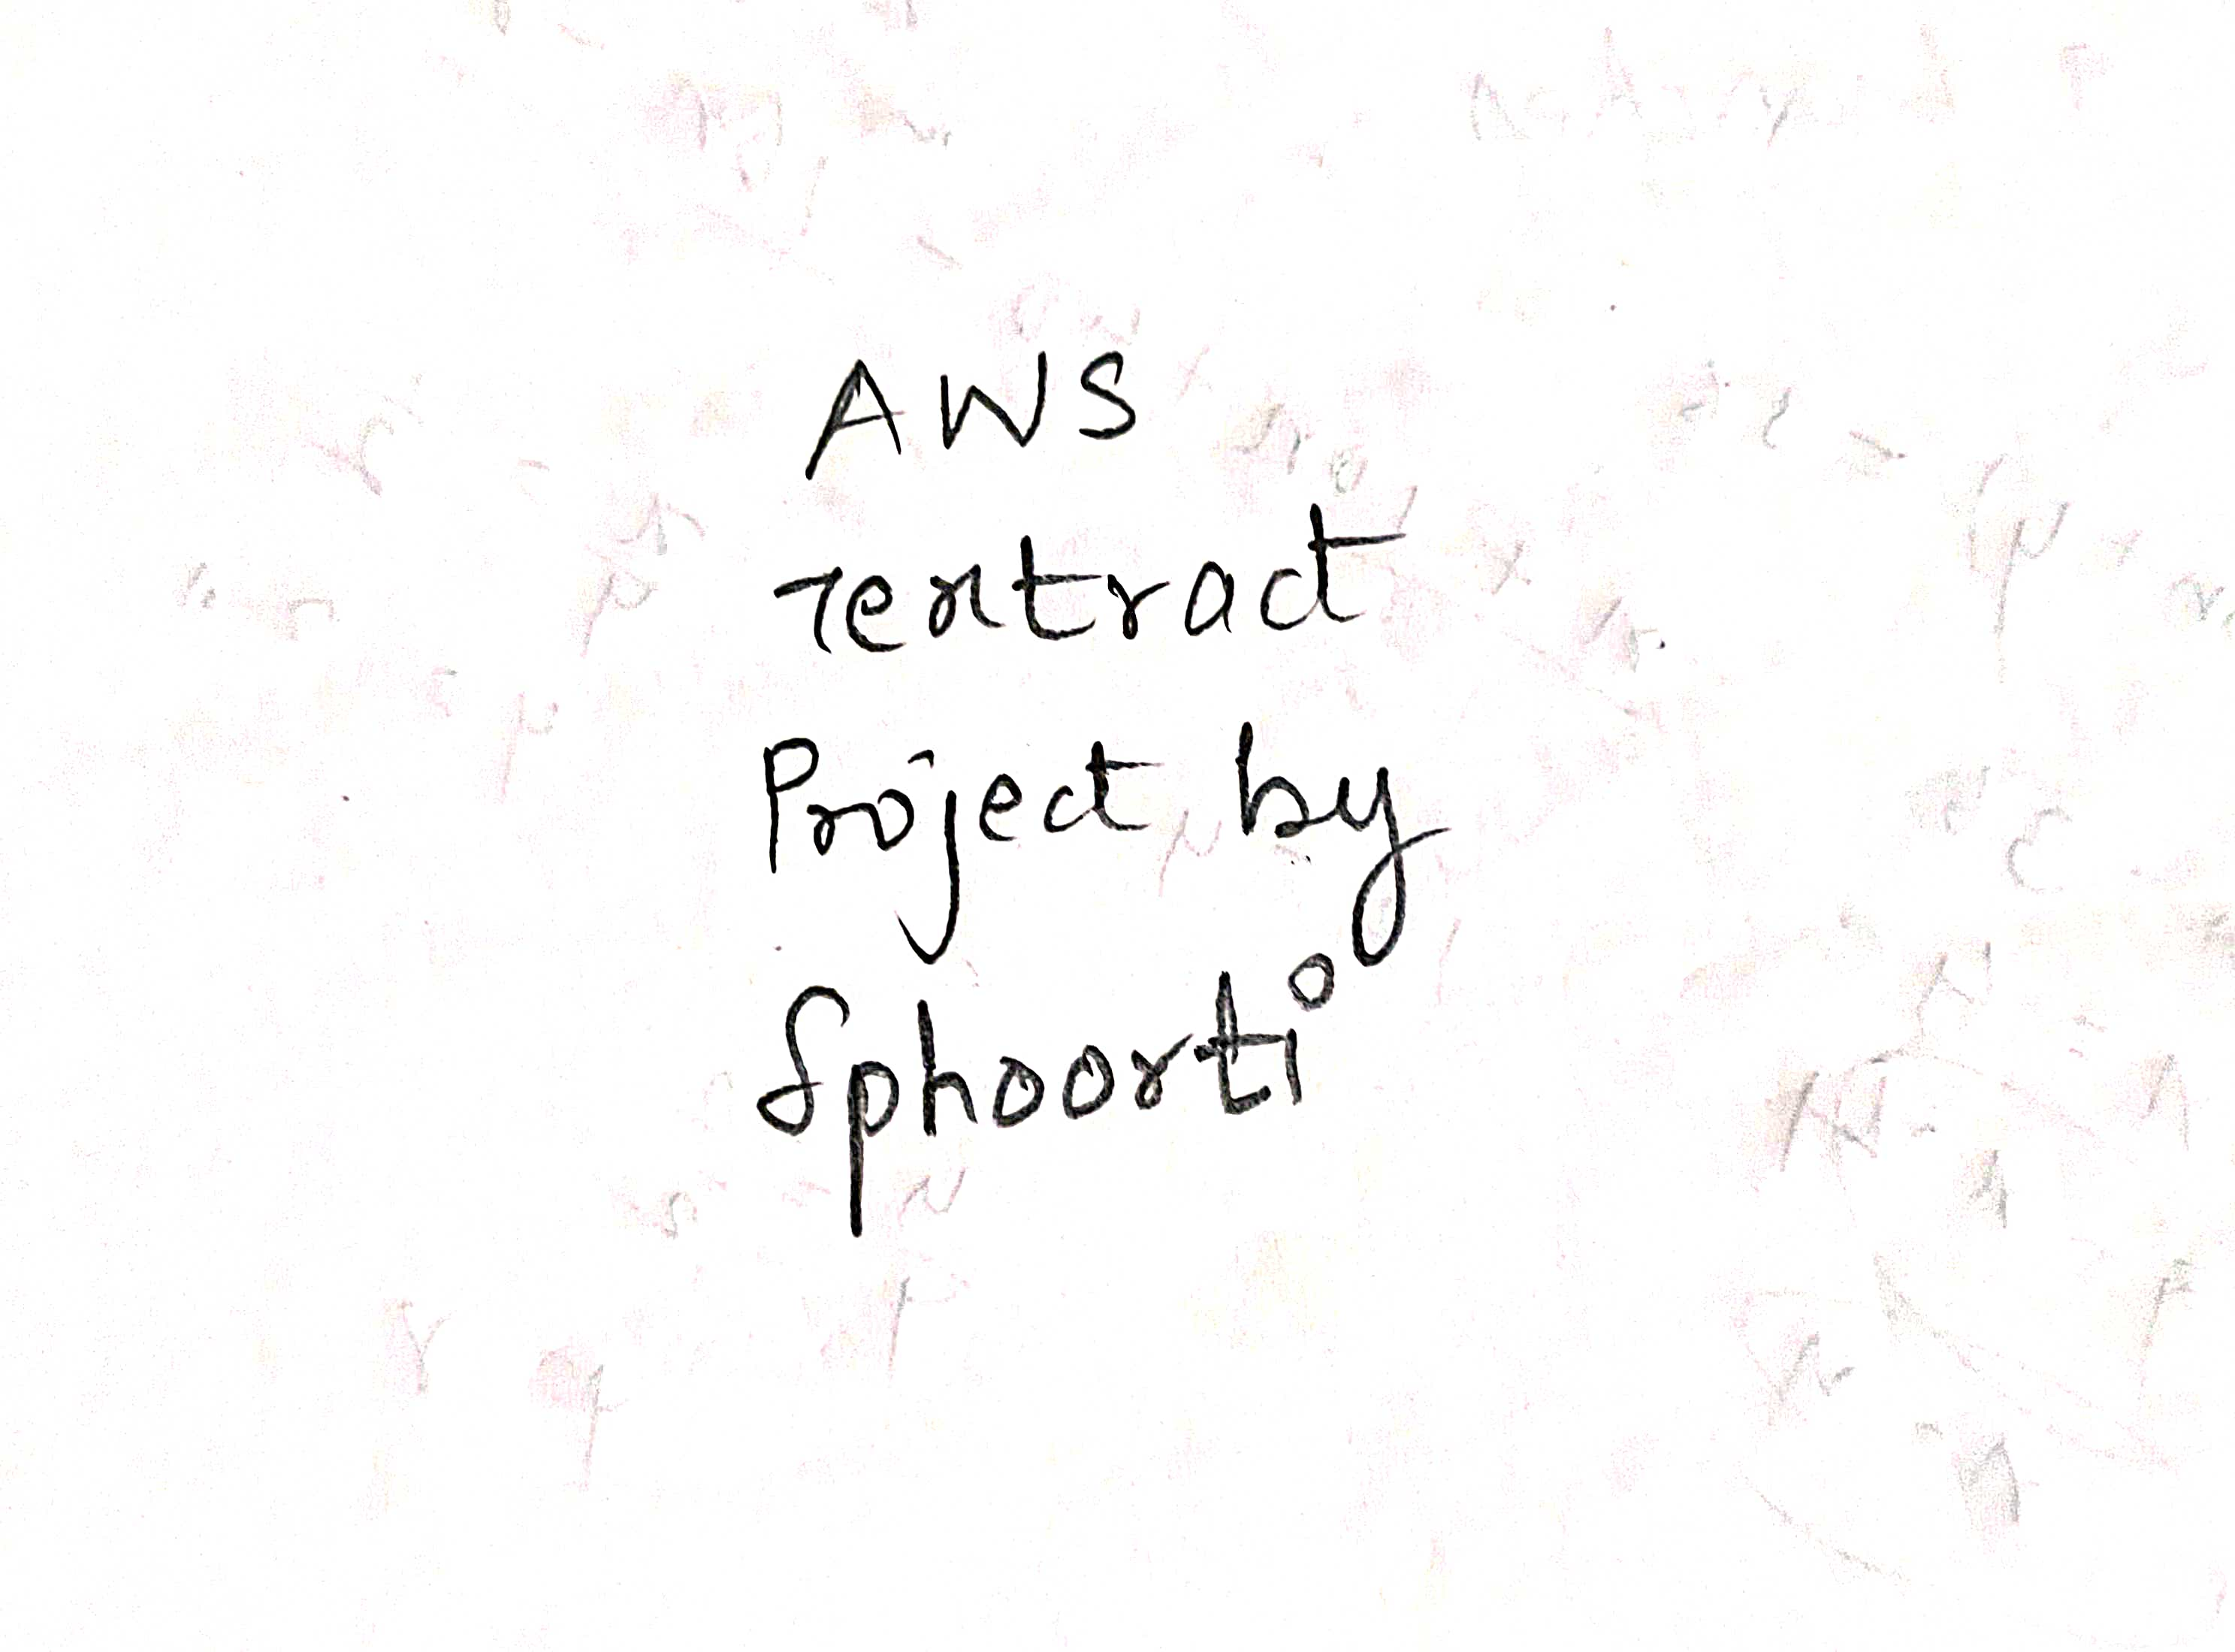 AWS
Textract
Project by
Sphoorti